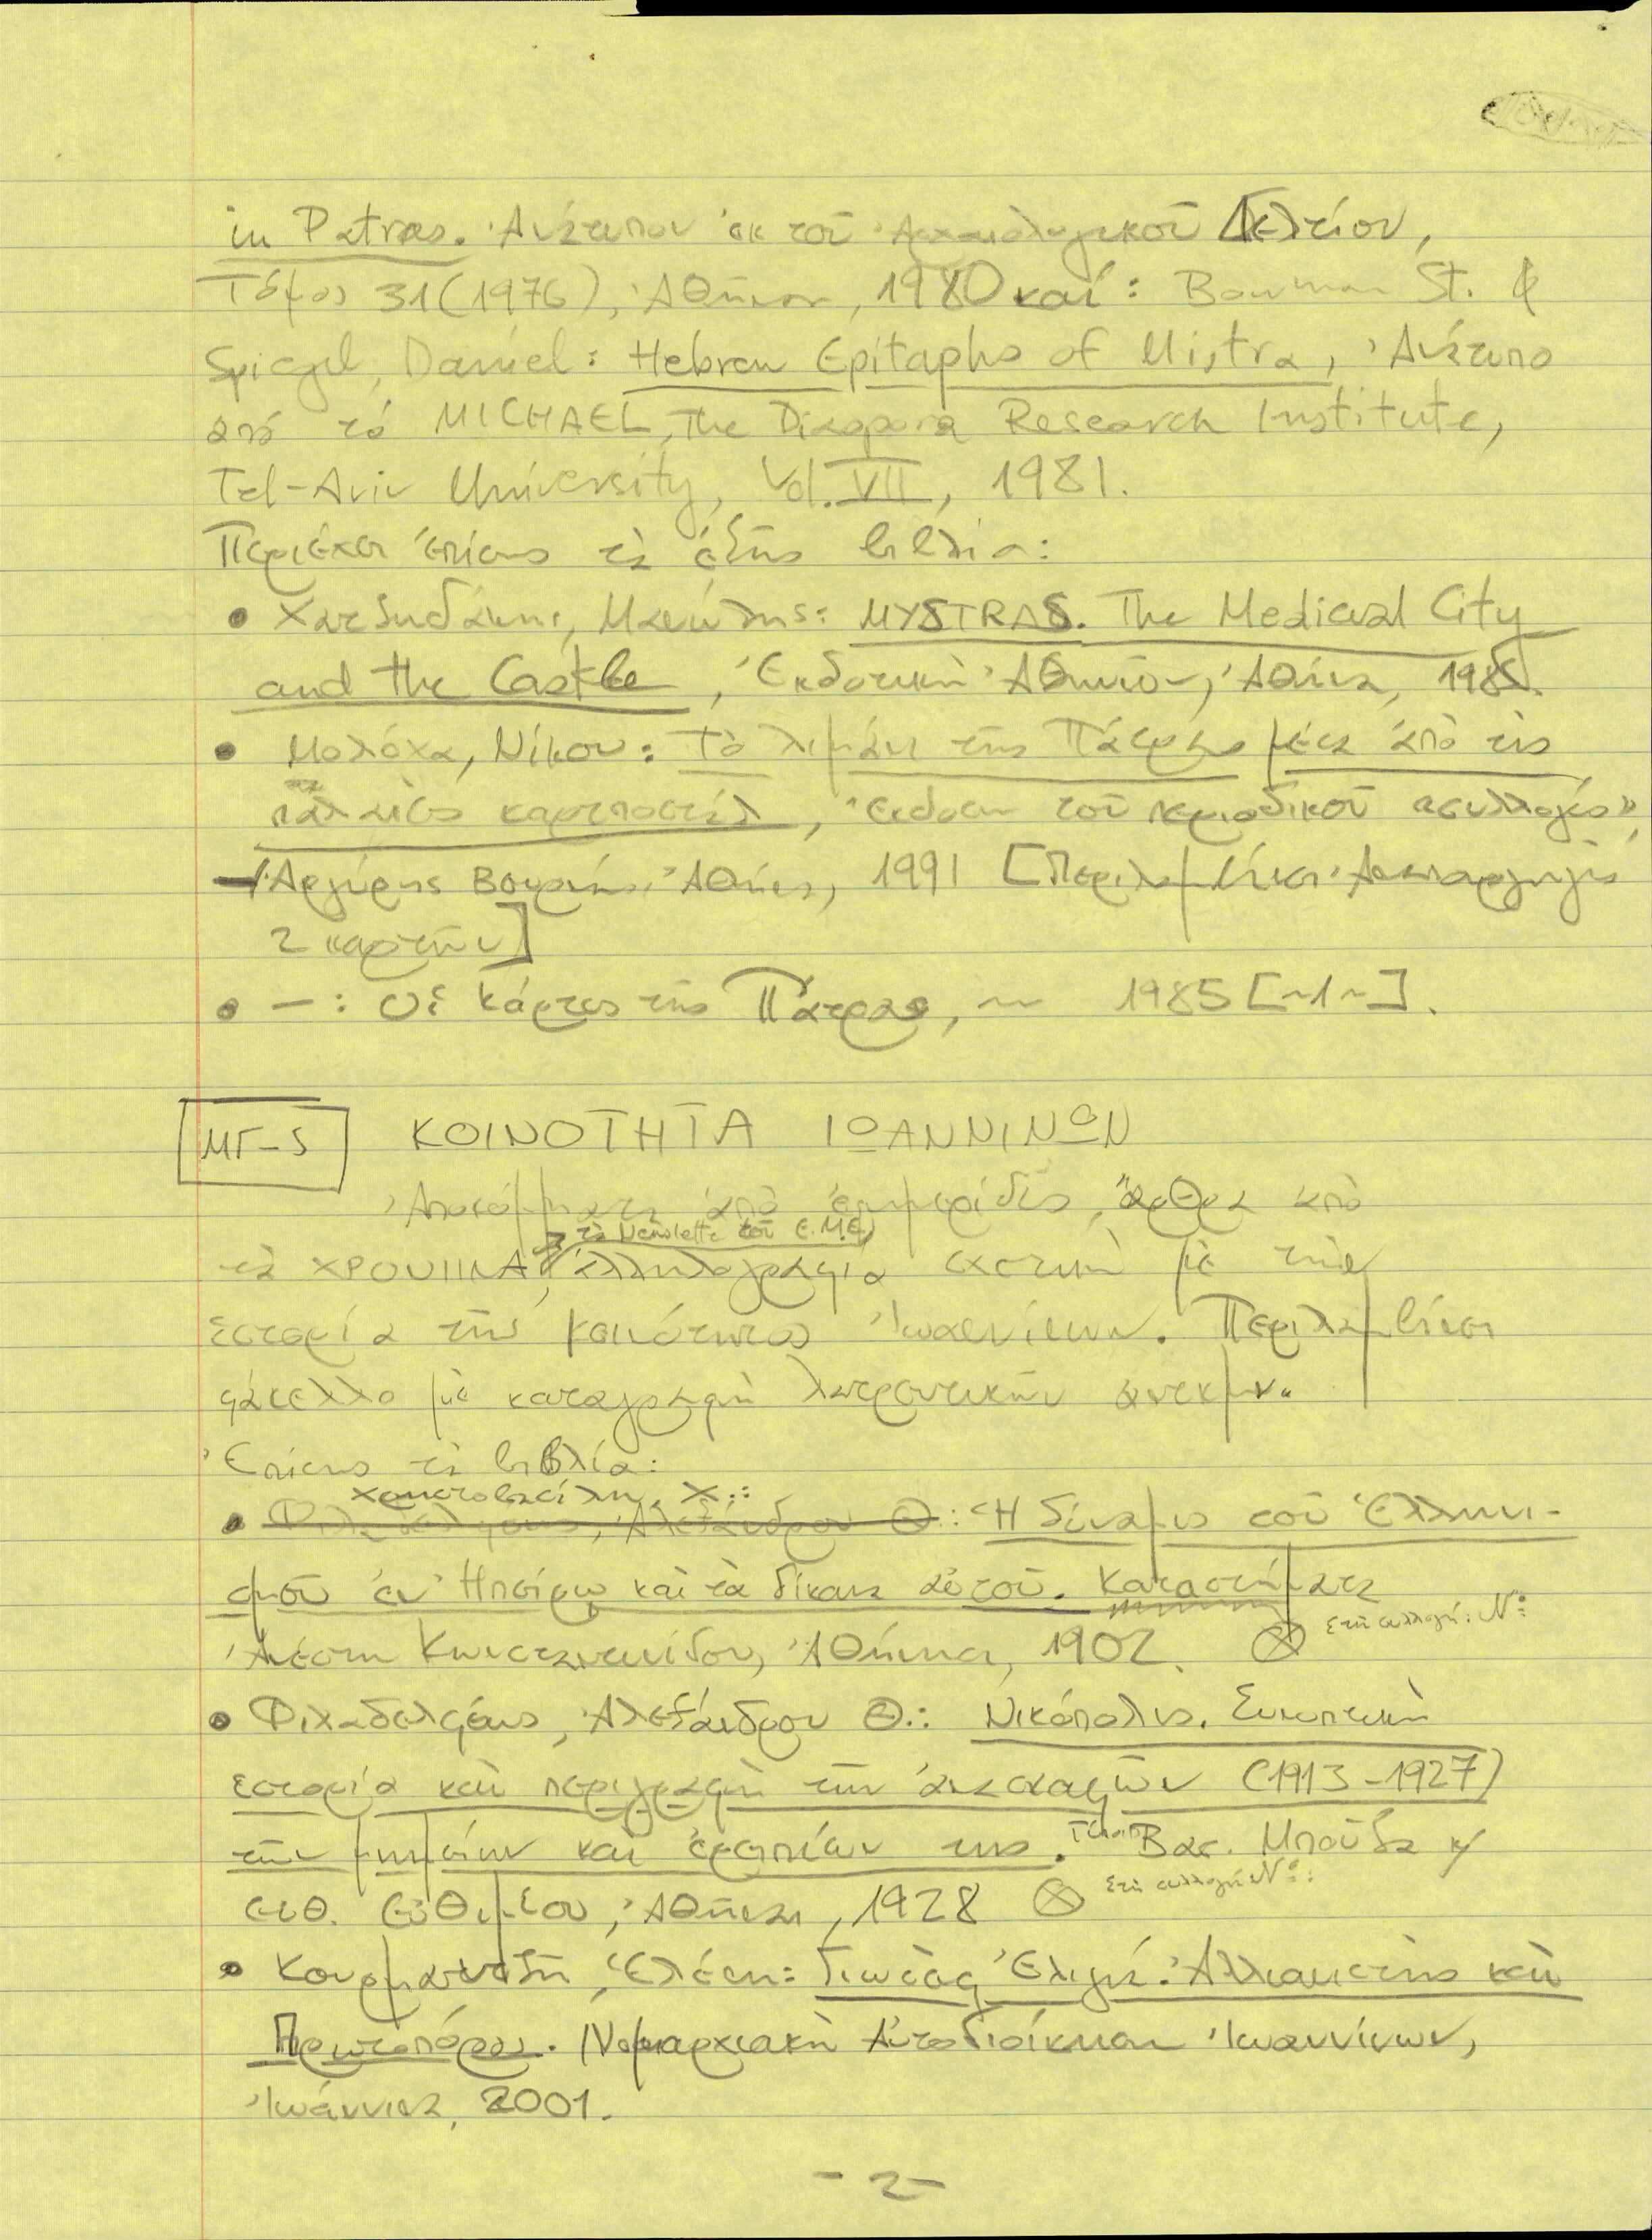 in Patras. Ἀνάτυπον ἐκ τοῦ Ἀρχαιολογικοῦ Δελτίου,
Τόμος 31 (1976), Ἀθῆναι, 1980 καί: Bowman St. &
Spiegel, Daniel: Hebrew Epitaphs of Mistra, Ἀνάτυπο
ἀπό τό MICHAEL, The Diaspora Research Institute,
Tel-Aviv University, Vol. VII, 1981.
Περιέχει ἐπίσης τὰ ἑξῆς βιβλία:
• Χατζηδάκης, Μανώλης: MYSTRAS. The Medieval City
and the Castle, Ἐκδοτική Ἀθηνῶν, Ἀθήνα, 198
• Μολόχα, Νίκου: Τὸ λιμάνι τῆς Πάτρας μέσα ἀπὸ τὶς
παλαιὲς καρτποστάλ, ἔκδοση τοῦ περιοδικοῦ «Συλλογές»,
Ἀργύρης Βουρνᾶς, Ἀθήνα, 1991 [Περιλαμβάνει
2 καρτῶν]
• — : Οἱ κάρτες τῆς Πάτρας, ~ 1985 [~1~].
ΜΓ-5 ΚΟΙΝΟΤΗΤΑ ΙΩΑΝΝΙΝΩΝ
Ἀποκόμματα ἀπὸ ἐφημερίδες, ἄρθρα ἀπὸ
τὸ Newsletter τοῦ Ε.Μ.Ε,
τὰ ΧΡΟΝΙΚΑ, ἀλληλογραφία σχετικὴ μὲ τὴν
ἱστορία τῆς κοινότητας Ἰωαννίνων. Περιλαμβάνει
φάκελλο μὲ καταγραφὴ λατρευτικῶν ἀντικμν.
Ἐπίσης τὰ βιβλία:
Χρηστοβασίλη, Χ.:
• Φιλαδελφέως, Ἀλεξάνδρου Θ.: Ἡ δύναμις τοῦ Ἑλληνι-
σμοῦ ἐν Ἠπείρῳ καὶ τὰ δίκαια αὐτοῦ. Καταστήματα
Ἀνέστη Κωνσταντινίδου, Ἀθῆναι, 1902. ⊗ Στὴ συλλογή: Nº:
• Φιλαδελφέως, Ἀλεξάνδρου Θ.: Νικόπολις. Συνοπτικὴ
ἱστορία καὶ περιγραφὴ τῶν ἀνασκαφῶν (1913-1927)
τῶν μνημείων καὶ ἐρειπίων της. Τύποις Βασ. Μπούζα &
Εὐθ. Εὐθυμίου, Ἀθῆναι, 1928 ⊗ Στὴ συλλογή Nº:
• Κουρμαντζῆ, Ἑλένη: Γιωσὲφ Ἐλιγιά. Ἀλλιανιστὴς καὶ
Πρωτοπόρος. Νομαρχιακὴ Αὐτοδιοίκηση Ἰωαννίνων,
Ἰωάννινα, 2001.
- 2 -